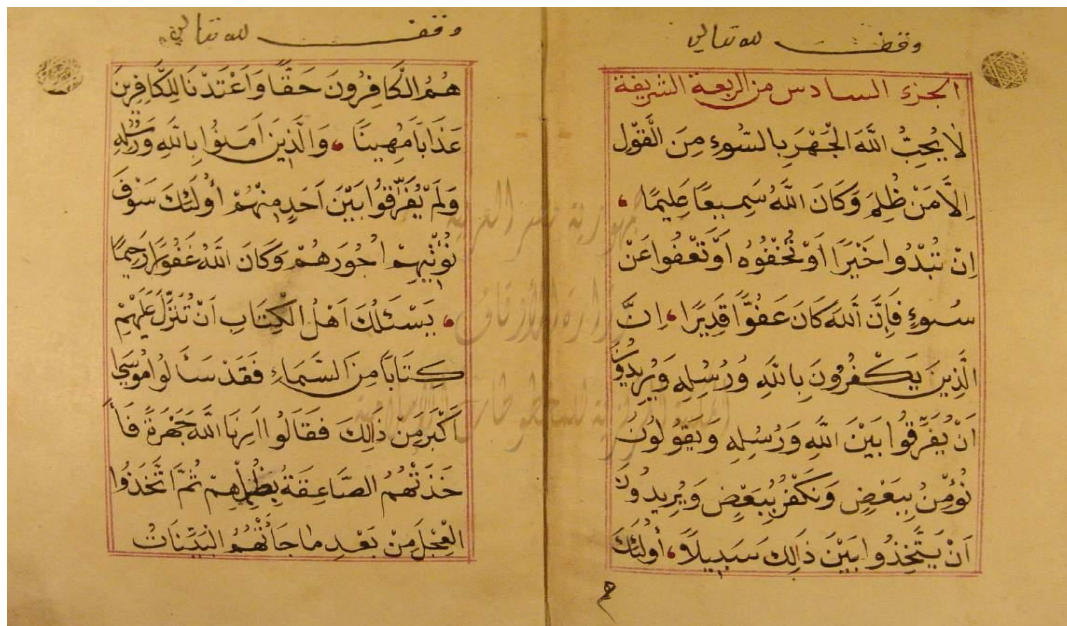 وقف لله تعالى
الجزء السادس من الربعة الشريفة
لَا يُحِبُّ اللَّهَ الْجَهْرَ بِالسُّوءِ مِنَ الْقَوْلِ
اِلَّا مَنْ ظُلِمَ وَكَانَ اللَّهُ سَمِيعًا عَلِيمًا
اِنْ تُبْدُوا خَيْرًا اَوْ تُخْفُوهُ اَوْ تَعْفُوا عَنْ
سُوءٍ فَاِنَّ اللَّهَ كَانَ عَفُوًّا قَدِيرًا اِنَّ
الَّذِينَ يَكْفُرُونَ بِاللَّهِ وَرُسُلِهِ وَيُرِيدُونَ
اَنْ يُفَرِّقُوا بَيْنَ اللَّهِ وَرُسُلِهِ وَيَقُولُونَ
نُؤْمِنُ بِبَعْضٍ وَنَكْفُرُ بِبَعْضٍ وَيُرِيدُونَ
اَنْ يَتَّخِذُوا بَيْنَ ذَالِكَ سَبِيلًا اُولَئِكَ
وقف لله تعالى
هُمُ الْكَافِرُونَ حَقًّا وَاَعْتَدْنَا لِلْكَافِرِينَ
عَذَابًا مُهِينًا وَالَّذِينَ اٰمَنُوا بِاللَّهِ وَرُسُلِهِ
وَلَمْ يُفَرِّقُوا بَيْنَ اَحَدٍ مِنْهُمْ اُولَئِكَ سَوْفَ
نُؤْتِيهِمْ اُجُورَهُمْ وَكَانَ اللَّهُ غَفُورًا رَحِيمًا
يَسْئَلُكَ اَهْلُ الْكِتَابِ اَنْ تُنَزِّلَ عَلَيْهِمْ
كِتَابًا مِنَ السَّمَاءِ فَقَدْ سَاَلُوا مُوسَى
اَكْبَرَ مِنْ ذَالِكَ فَقَالُوا اَرِنَا اللَّهَ جَهْرَةً فَاَ
خَذَتْهُمُ الصَّاعِقَةُ بِظُلْمِهِمْ ثُمَّ اتَّخَذُوا
الْعِجْلَ مِنْ بَعْدِ مَا جَاَتْهُمُ الْبَيِّنَاتُ